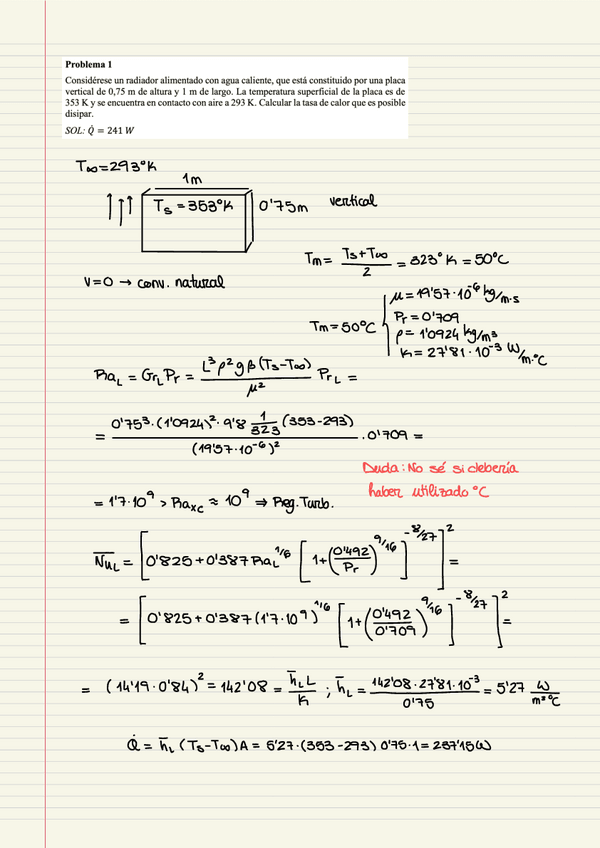 Problema 1
Considérese un radiador alimentado con agua caliente, que está constituido por una placa
vertical de 0,75 m de altura y 1 m de largo. La temperatura superficial de la placa es de
353 K y se encuentra en contacto con aire a 293 K. Calcular la tasa de calor que es posible
disipar.
SOL: Q̇ = 241 W
T∞=293°K
1m
Ts = 353°K 0'75m vertical
Tm = (Ts+T∞)/2 = 323°K = 50°C
V=0 → conv. natural
Tm=50°C { μ = 19'57·10⁻⁶ kg/m·s
Pr = 0'709
ρ = 1'0924 kg/m³
K = 27'81·10⁻³ W/m·°C
Ra_L = Gr_L Pr = (L³ρ²gβ(Ts-T∞))/μ² Pr_L =
= (0'75³·(1'0924)²·9'8 1/323 (353-293))/(19'57·10⁻⁶)² · 0'709 =
Duda: No sé si debería
haber utilizado °C
= 1'7·10⁹ > Ra_xc ≈ 10⁹ ⇒ Reg. Turb.
N̄u_L = [0'825+0'387 Ra_L^1/6 [1+(0'492/Pr)^9/16]^-8/27]² =
= [0'825+0'387 (1'7·10⁹)^1/6 [1+(0'492/0'709)^9/16]^-8/27]² =
= (14'19·0'84)² = 142'08 = h̄_L L/K ; h̄_L = (142'08·27'81·10⁻³)/0'75 = 5'27 W/m²°C
Q̇ = h̄_L (Ts-T∞) A = 5'27·(353-293) 0'75·1 = 237'15 W